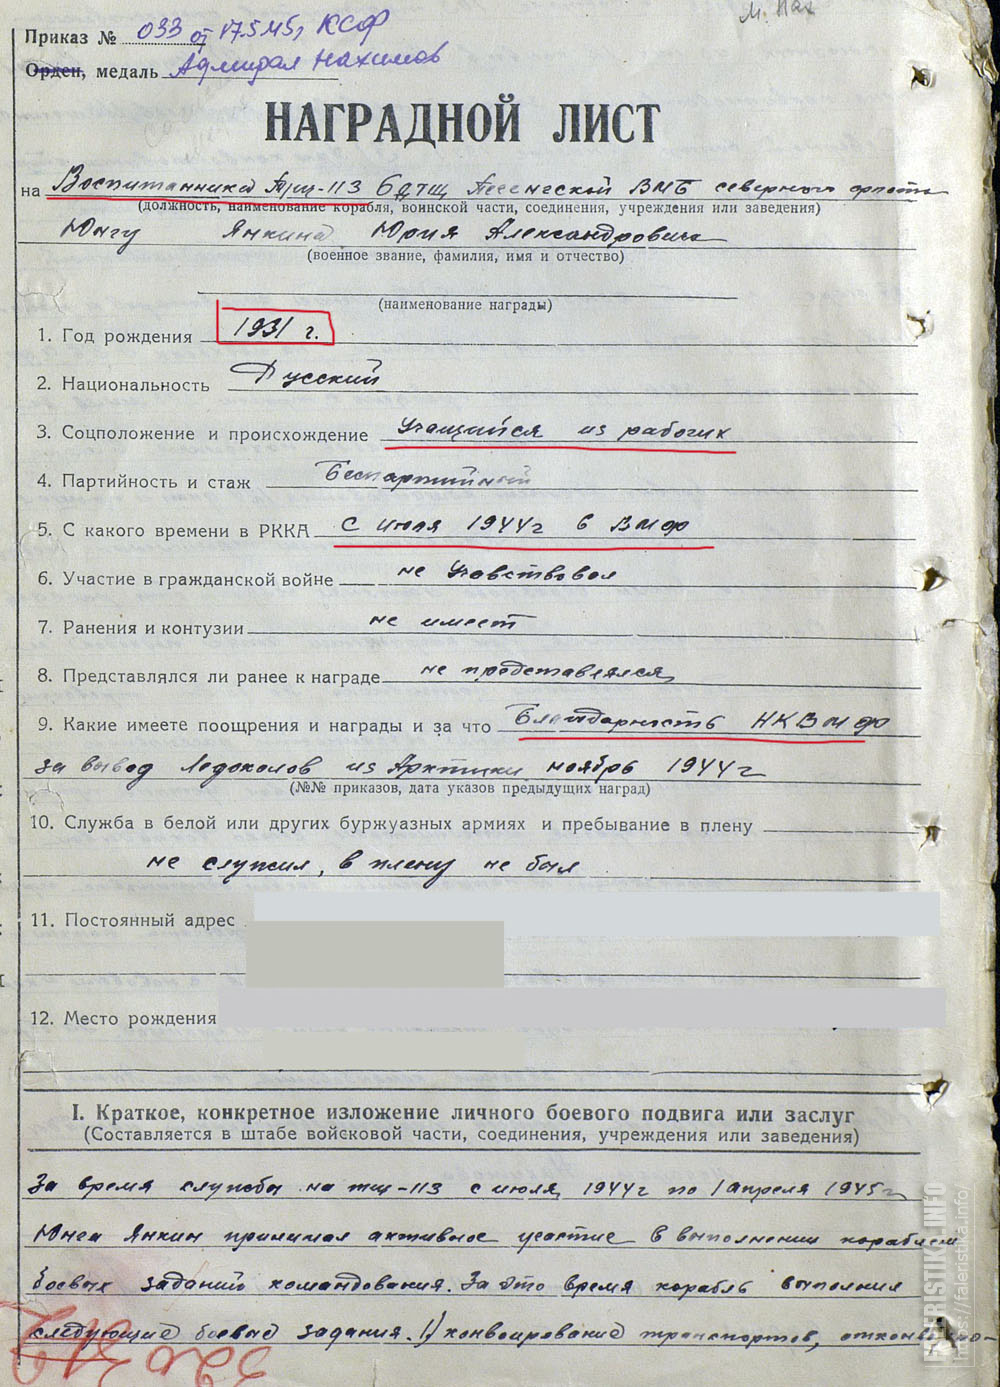 М. Нах
Приказ № 033 от 17.5.45г КСФ
Орден, медаль Адмирал Нахимов
НАГРАДНОЙ ЛИСТ
на Воспитанника Тщ-113 6 дтщ Иоканской ВМБ северного флота
(должность, наименование корабля, воинской части, соединения, учреждения или заведения)
Юнгу Янкина Юрия Александровича
(военное звание, фамилия, имя и отчество)
(наименование награды)
1. Год рождения 1931 г.
2. Национальность Русский
3. Соцположение и происхождение Учащийся из рабочих
4. Партийность и стаж Беспартийный
5. С какого времени в РККА С июля 1944г в ВМФ
6. Участие в гражданской войне не учавствовал
7. Ранения и контузии не имеет
8. Представлялся ли ранее к награде не представлялся
9. Какие имеете поощрения и награды и за что Благодарность НКВМФ
за вывод Ледоколов из Арктики ноябрь 1944г
(№№ приказов, дата указов предыдущих наград)
10. Служба в белой или других буржуазных армиях и пребывание в плену
не служил, в плену не был
11. Постоянный адрес
12. Место рождения
I. Краткое, конкретное изложение личного боевого подвига или заслуг
(Составляется в штабе войсковой части, соединения, учреждения или заведения)
За время службы на тщ-113 с июля 1944г по 1 апреля 1945г
Юнга Янкин принимал активное участие в выполнении кораблем
боевых заданий командования. За это время корабль выполнил
следующие боевые задания. 1) конвоирование транспортов,
FALERISTIKA.INFO
https://faleristika.info